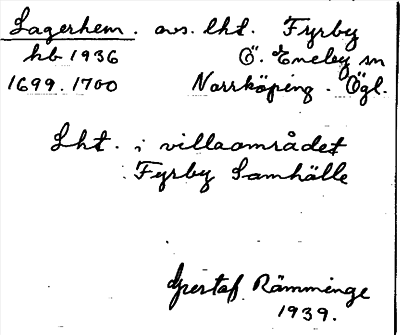 Lagerhem. avs. lht. Fyrby
hb 1936 Ö. Eneby sn
1699. 1700 Norrköping. Ögl.
Lht. i villaområdet
Fyrby Samhälle
Gustaf Rämminge
1939.